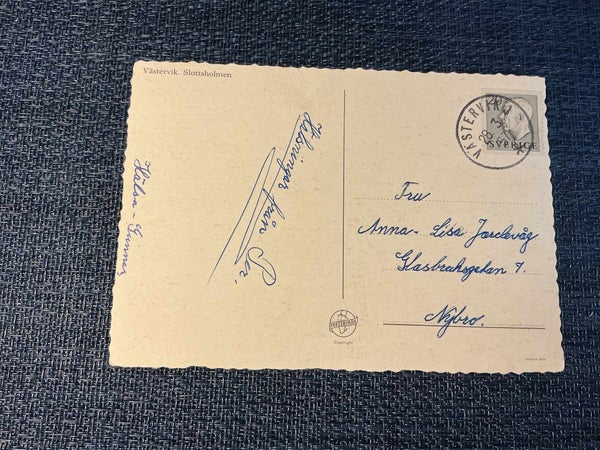 Västervik. Slottsholmen
Hälsningar
från Per.
Hälsa - Gunnar
VÄSTERVIK 1
28 3
SVERIGE
Fru
Anna-Lisa Jordevåg
Glasbruksgatan 7.
Nybro.
Copyright